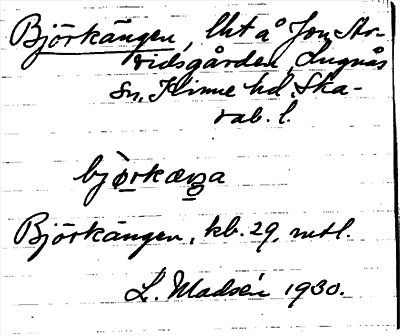 Björkängen, lht å Jon Ar-
vidsgården, Lugnås
sn, Kinne hd. Ska-
rab. l.
bjørkæŋa
Björkängen, kb. 29, mtl.
L. Madsén 1930.